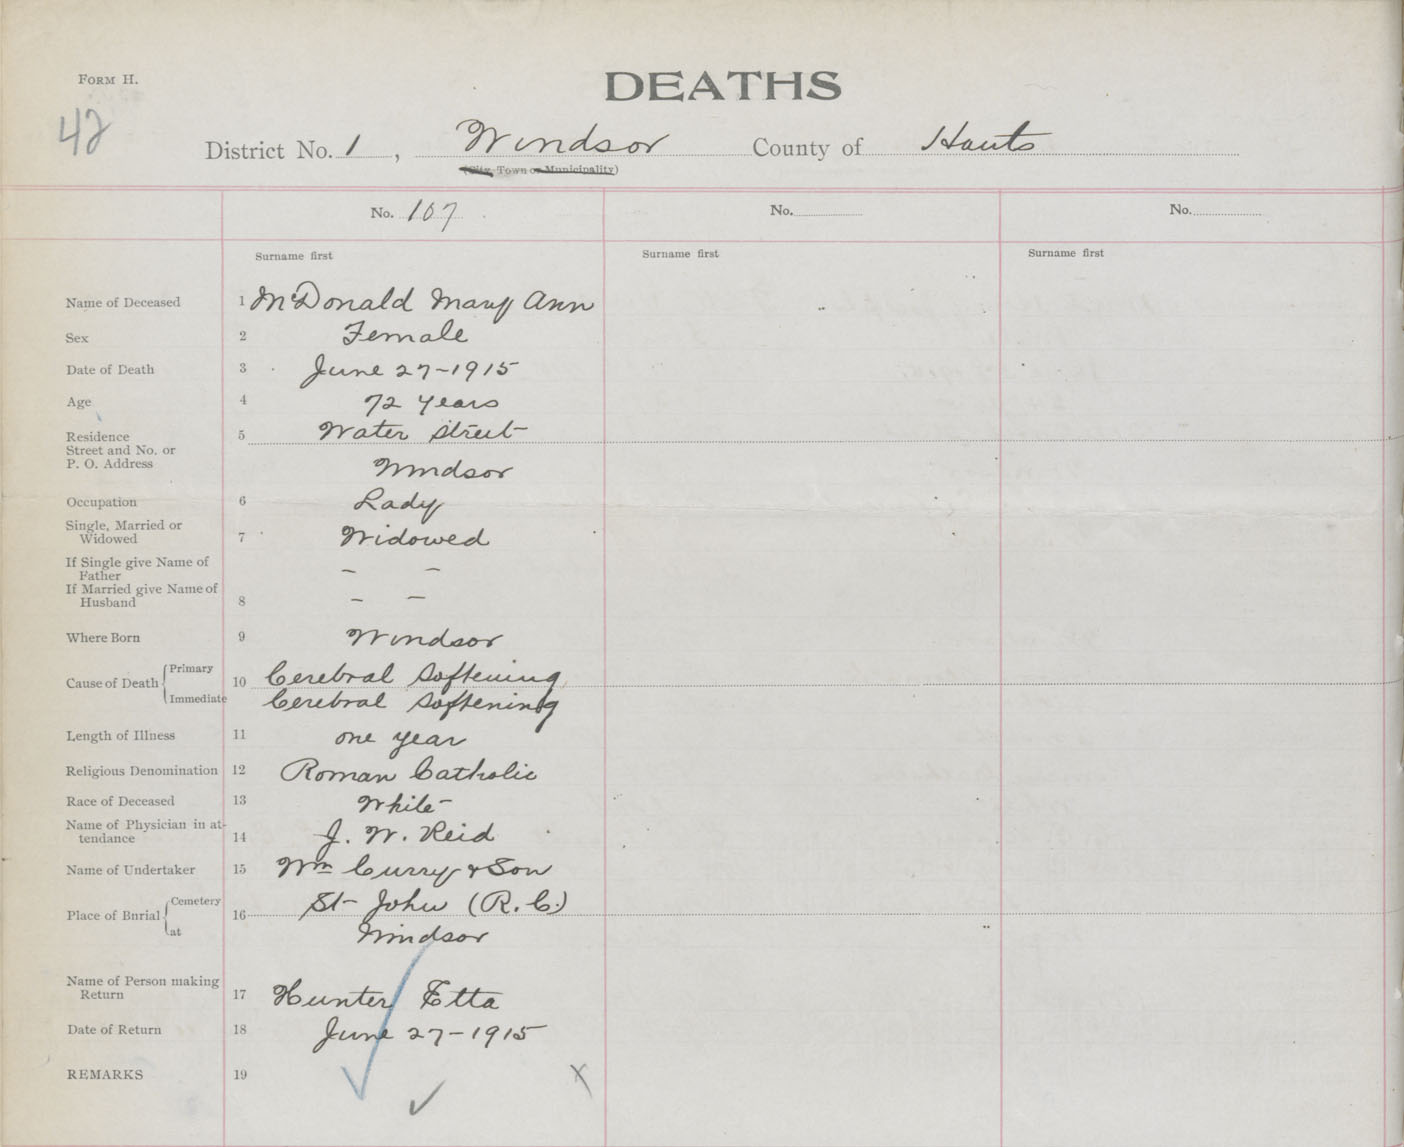 FORM H.
DEATHS
42
District No. 1, Windsor County of Hants
(City, Town or Municipality)
No. 107 No. No.
Surname first Surname first Surname first
Name of Deceased 1 McDonald Mary Ann
Sex 2 Female
Date of Death 3 June 27-1915
Age 4 72 years
Residence 5 Water Street
Street and No. or
P. O. Address Windsor
Occupation 6 Lady
Single, Married or
Widowed 7 Widowed
If Single give Name of
Father - -
If Married give Name of
Husband 8 - -
Where Born 9 Windsor
Cause of Death Primary 10 Cerebral Softening
Immediate Cerebral Softening
Length of Illness 11 one year
Religious Denomination 12 Roman Catholic
Race of Deceased 13 White
Name of Physician in at-
tendance 14 J. W. Reid
Name of Undertaker 15 Wm Curry & Son
Place of Burial Cemetery 16 St John (R.C.)
at Windsor
Name of Person making
Return 17 Hunter Etta
Date of Return 18 June 27-1915
REMARKS 19